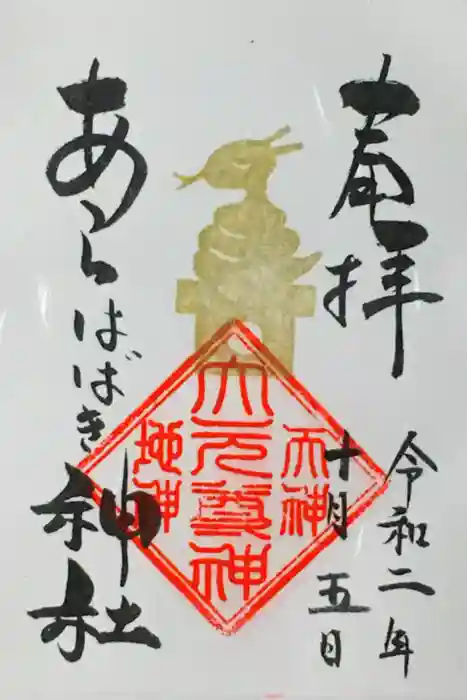 奉拝
令和二年
十月五日
あらはばき神社
天神
大元尊神
地神